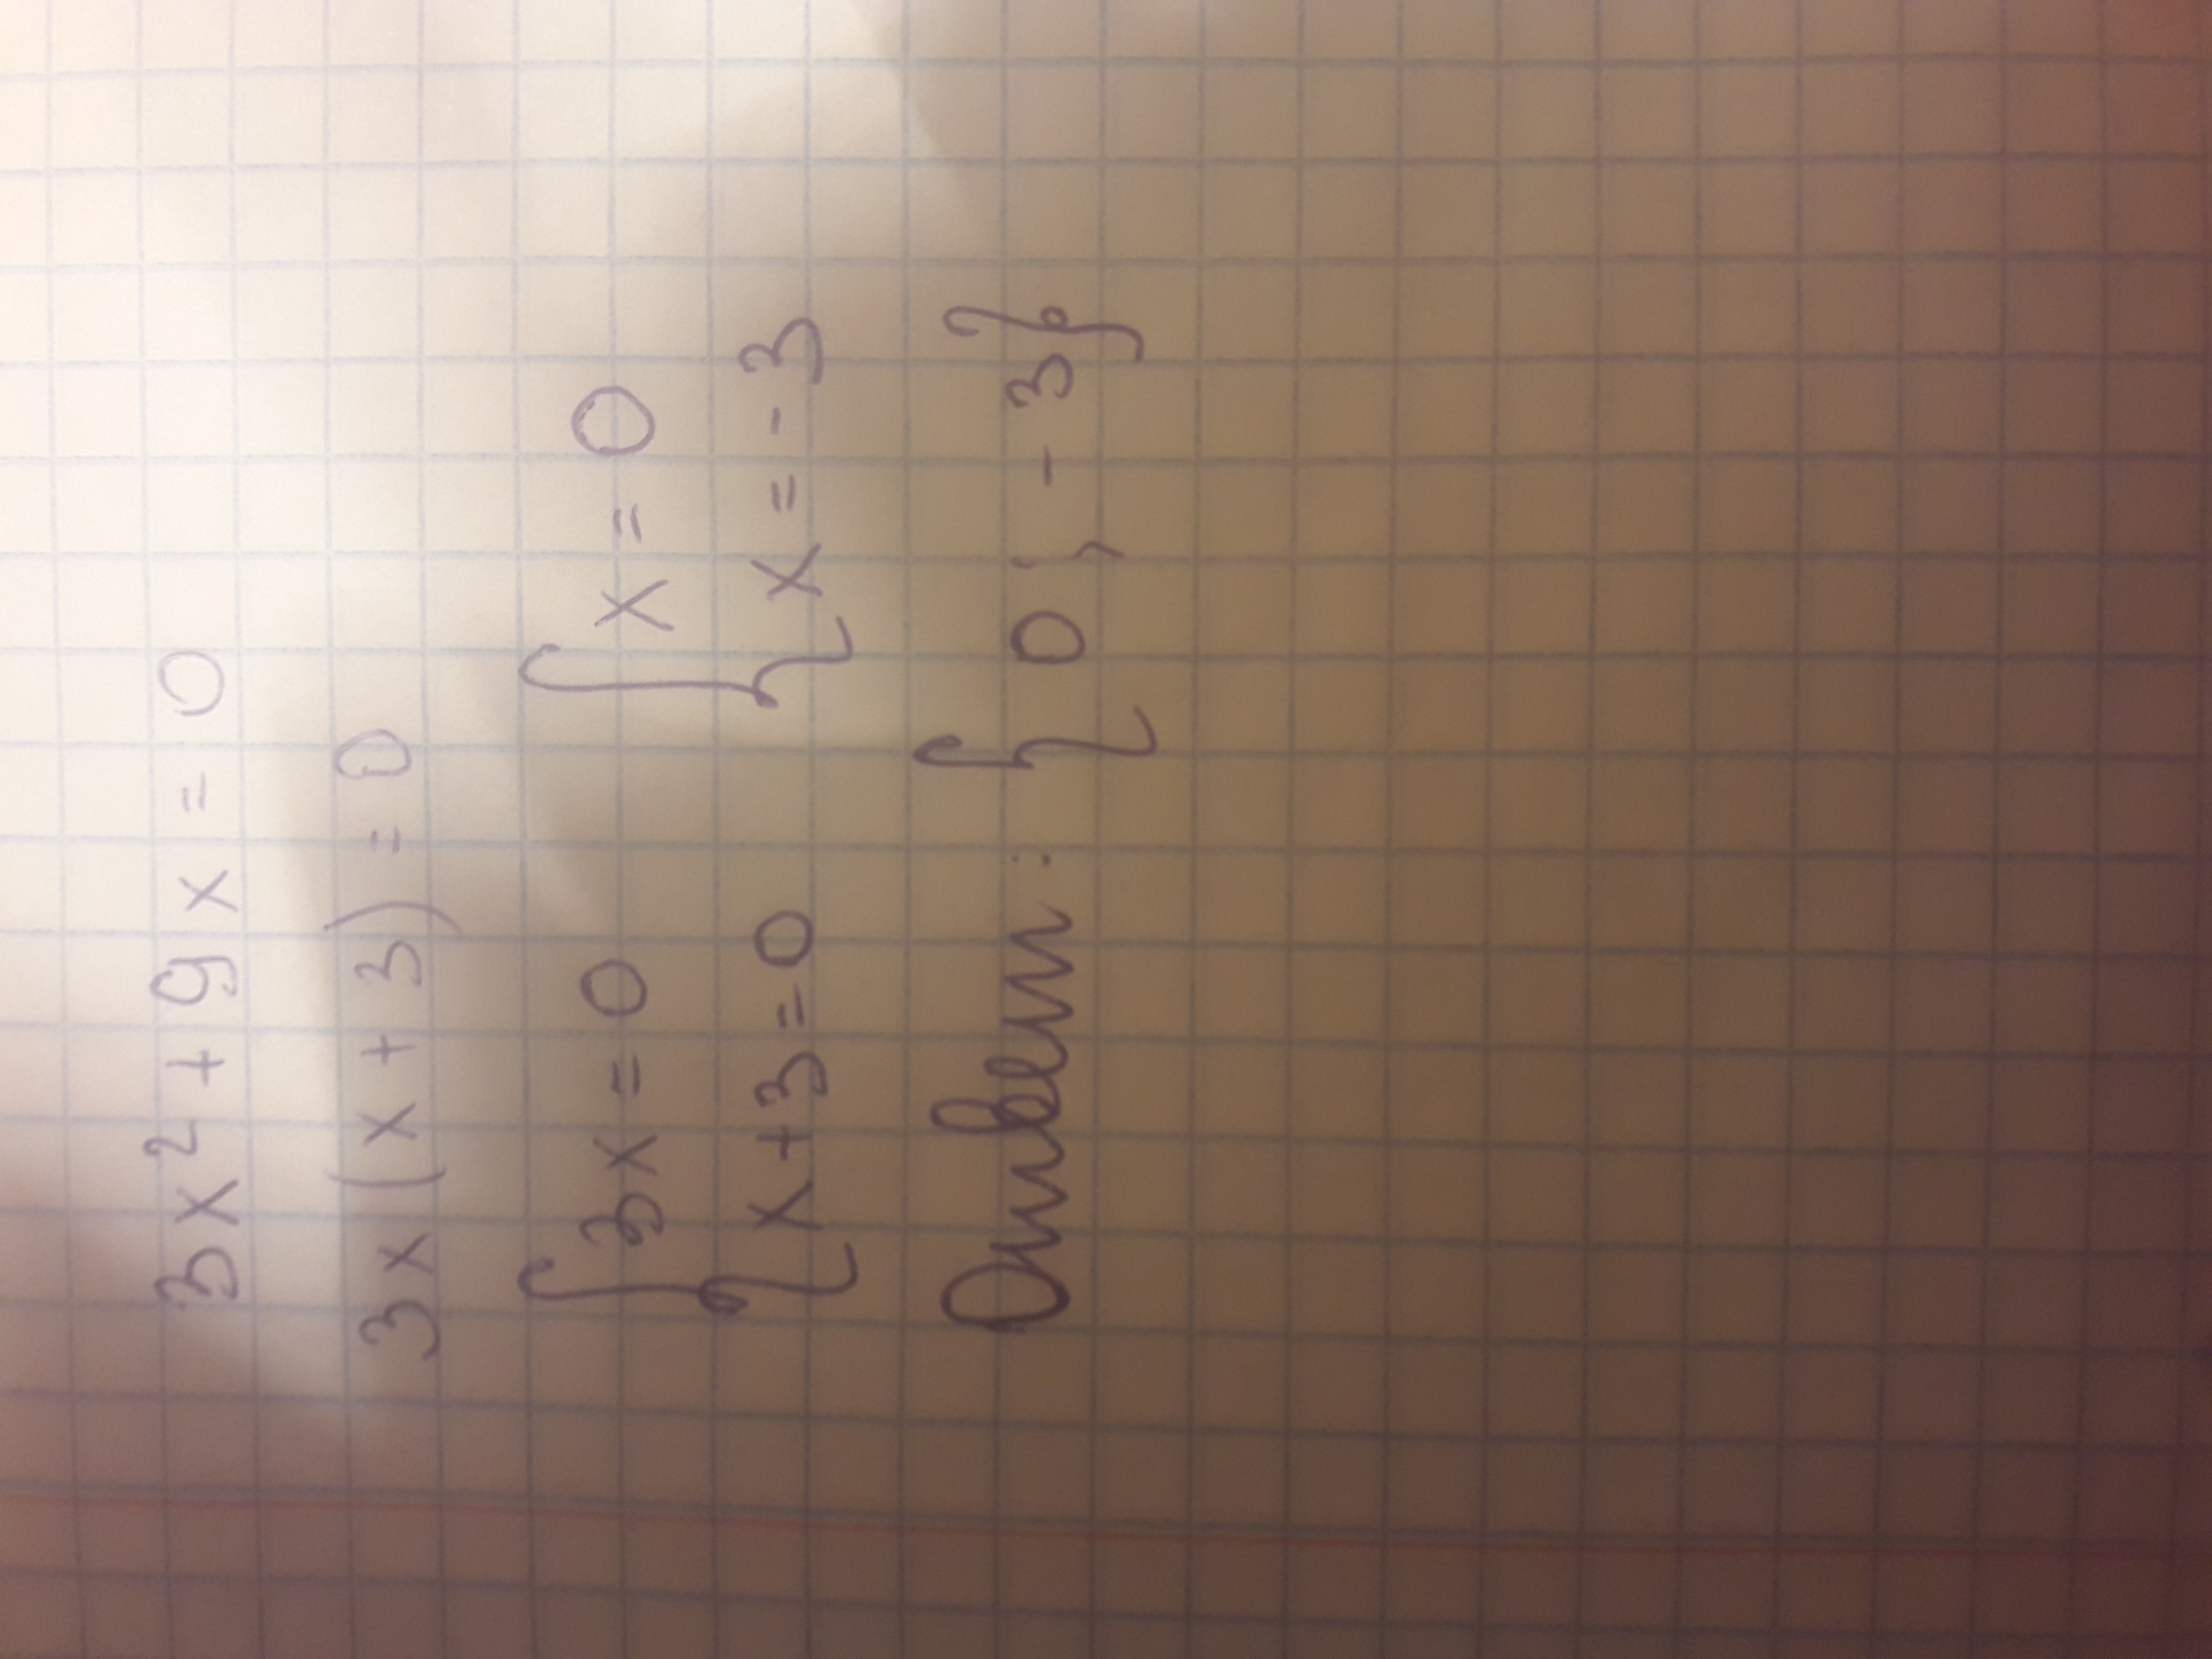 3x² + 9x = 0
3x(x + 3) = 0
{ 3x = 0 { x = 0
{ x + 3 = 0 { x = - 3
Ответ: { 0 ; - 3 }